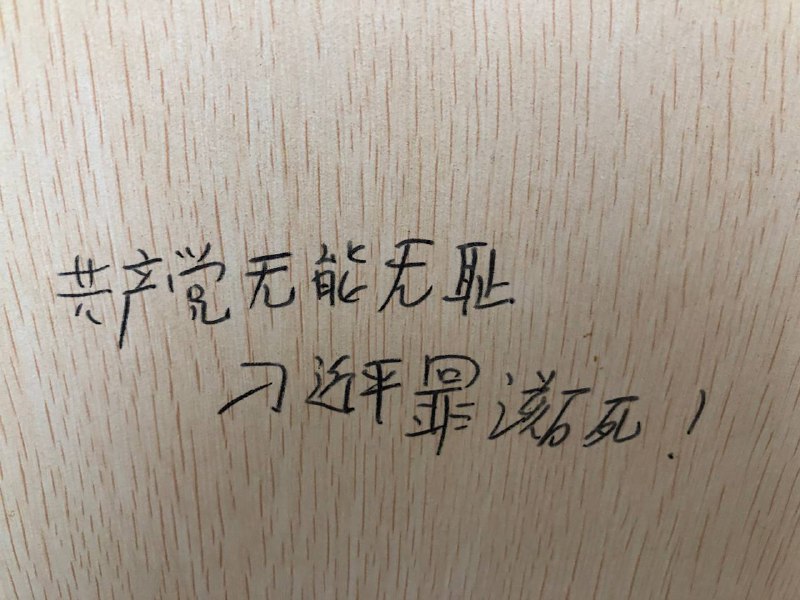 共产党无能无耻
刁近平罪该万死！